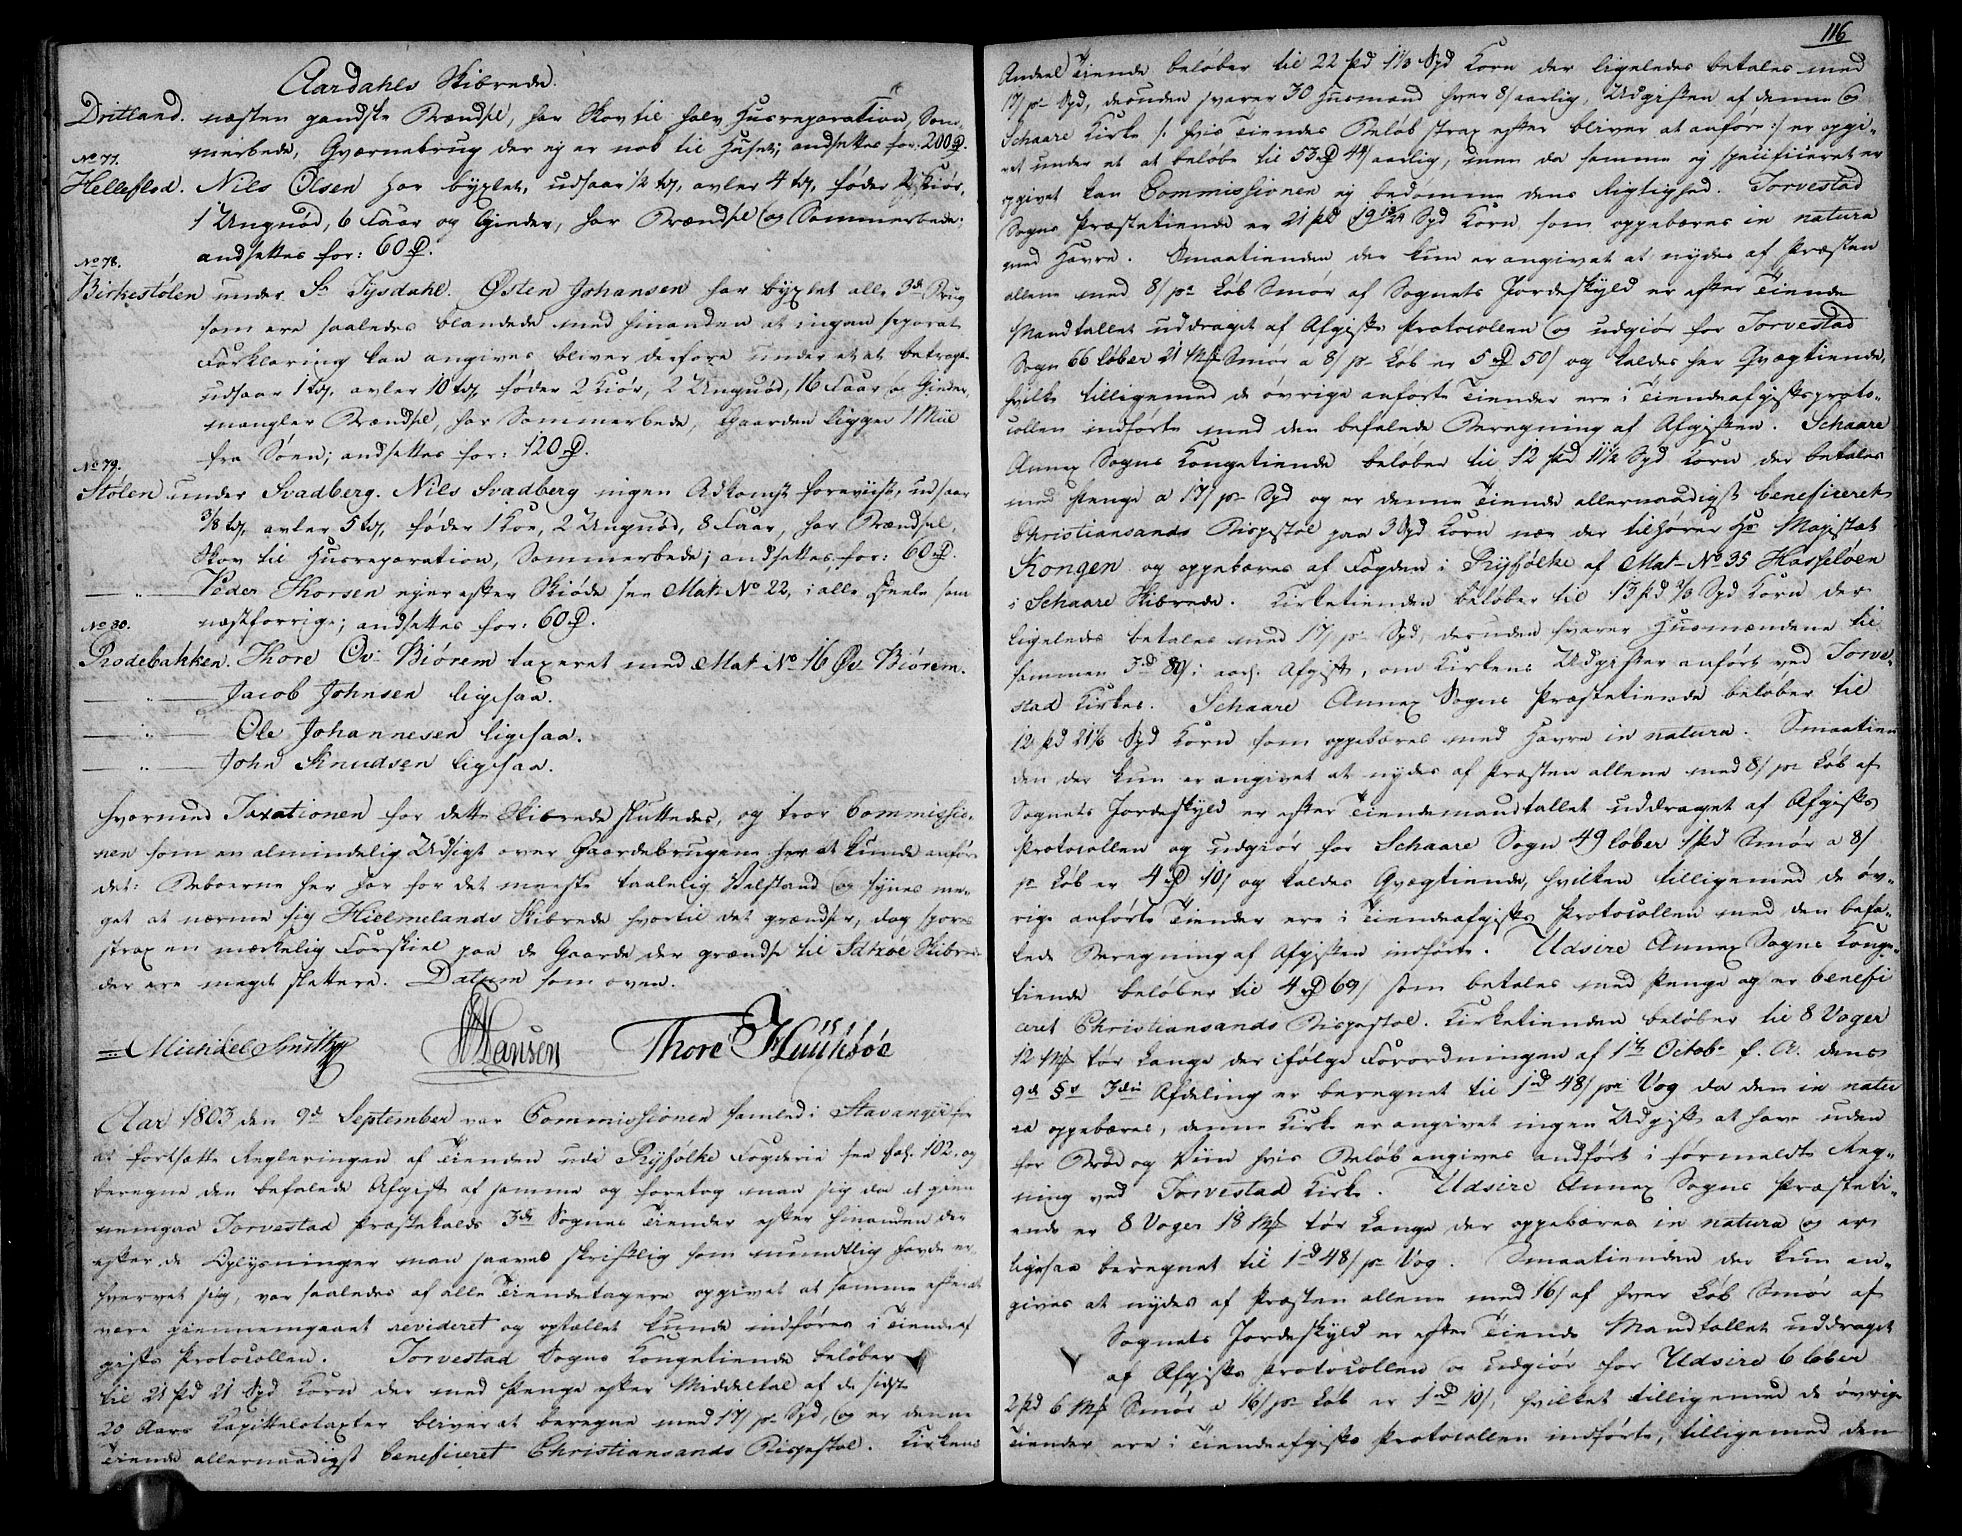 Aardahls Skibrede.
Dritland. næsten gandske Brændsel, har Skov til halv Husreparation, Som-
merbede, Qværnebrug der ej er nok til Huset; andsettes for: 200 D.
No 77.
Helleflod. Nils Olsen har byxlet, udsaar ½ td, avler 4 td, føder 2 Kiør,
1 Ungnød, 6 Faar og Gieder, har Brændsel og Sommerbede;
andsettes for: 60 D.
No 78.
Birkestølen under St Tysdahl. Østen Johansen har byxlet alle 3de Brug
som ere saaledes blandede med hinanden at ingen separat
Forklaring kan angives bliver derfore under et at betragte
udsaar 1 td, avler 10 td, føder 2 Kiør, 2 Ungnød, 16 Faar og Gieder,
mangler Brændsel, har Sommerbede, Gaarden ligger 1 Miil
fra Søen; andsettes for: 120 D.
No 79.
Stølen under Svadberg. Nils Svadberg ingen Adkomst foreviist, udsaar
3/8 td, avler 5 td, føder 1 Koe, 2 Ungnød, 8 Faar, har Brændsel,
Skov til Husreparation, Sommerbede; andsettes for: 60 D.
— " — Peder Thorsen ejer efter Skiøde see Mat: No 22, i alle Deele som
næstforrige; andsettes for: 60 D.
No 80.
Brodebakken. Thore Øv: Biørem taxeret med Mat: No 16 Øv. Biørem.
— " — Jacob Johnsen ligesaa.
— " — Ole Johannesen ligesaa.
— " — John Knudsen ligesaa.
hvormed Taxationen for dette Skibrede sluttedes, og troer Commissio-
nen som en almindelig Udsigt over Gaardebrugene her at kunde anføre
det: Beboerne her har for det meeste taalelig Velstand og synes me-
get at nærme sig Hielmelands Skibrede hvortil det grændser, dog spores
strax en mærkelig Forskiel paa de Gaarde der grændse til Idsøe Skibre-
der ere meget slettere. Datum som oven.
Michael Smith Hansen Thore
Aar 1803 den 9de September var Commissionen samled i Stavanger for
at fortsætte Regleringen af Tienden udi Ryfølke Fogderie see fol. 102. og
beregne den befalede Afgift af samme og foretog man sig da at gien
nemgaa Torvestad Præstekalds 3de Sognes Tiender efter hinanden der
efter de Oplysninger man saavel skriftlig som mundtlig havde er
hvervet sig, var saaledes af alle Tiendetagere opgivet at samme efter at
være giennemgaaet revideret og optællet kunde indføres i Tiendeaf
gifts Protocollen. Torvestad Sogns Kongetiende beløber
til 21 Pd 21 Spd Korn der med Penge efter Middeltal af de sidste
20 Aars Kapitelstaxter bliver at beregne med 17/ pr Spd, og er denne
Tiende allernaadigst beneficeret Christiansands Bispestol. Kirkens
116
Andeel Tiende beløber til 22 Pd 1⅓ Spd Korn der ligeledes betales med
17/ pr Spd, desuden svarer 30 Husmænd hver 8/ aarlig, Udgiften af denne og
Schaare Kirke /: hvis Tiendes Beløb strax efter bliver at anføre :/ er opgi-
vet under et at beløbe til 53 D 44/ aarlig, men da samme ej specificeret er
opgivet kan Commissionen ej bedømme dens Rigtighed. Torvestad
Sogns Præstetiende er 21 Pd Spd Korn som oppebæres in natura
med Havre. Smaatienden der kun er angivet at nydes af Præsten
allene med 8/ pr Løb Smør af Sognets Jordeskyld er efter Tiende
Mandtallet uddraget af Afgifts Protocollen og udgiør for Torvestad
Sogn 66 Løber 21 Mk Smør a 8/ pr Løb er 5 D 50/ og kaldes her Qvægtiende,
hvilke tilligemed de øvrige anførte Tiender ere i Tiendeafgiftsproto-
collen indførte med den befalede Beregning af Afgiften. Schaare
Annex Sogns Kongetiende beløber til 12 Pd 11½ Spd Korn der betales
med Penge a 17/ pr Spd og er denne Tiende allernaadigst beneficeret
Christiansands Bispestol paa 3 Spd Korn nær der tilhører Hs Majestæt
Kongen og oppebæres af Fogden i Ryfølke af Mat- No 35 Hasseløen
i Schaare Skibrede. Kirketienden beløber til 13 Pd ⅔ Spd Korn der
ligeledes betales med 17/ pr Spd, desuden svarer Husmændene til
sammen 3rd 80/ i aarl. Afgift, om Kirkens Udgifter anført ved Torve-
stad Kirke. Schaare Annex Sogns Præstetiende beløber til
12 Pd 21⅙ Spd Korn som oppebæres med Havre in natura. Smaatien
den der kun er angivet at nydes af Præsten allene med 8/ pr Løb af
Sognets Jordeskyld er efter Tiendemandtallet uddraget af Afgifts
Protocollen og udgiør for Schaare Sogn 49 Løber 1 Pd Smør a 8/
pr Løb er 4 D 10/ og kaldes Qvægtiende, hvilken tilligemed de øv-
rige anførte Tiender ere i Tiendeafgifts Protocollen med den befa-
lede Beregning af Afgiften indførte. Udsire Annex Sogns Konge-
tiende beløber til 4 D 69/ som betales med Penge og er benefi
ceret Christiansands Bispestol. Kirketienden beløber til 8 Voger
12 Mk tør Lange der ifølge Forordningen af 1te Octobr f. A. dens
9de §s 3die Afdeling er beregnet til 1rd 48/ pr Vog da den in natu
ra oppebæres, denne Kirke er angivet ingen Udgift at have uden
for Brød og Viin hvis Beløb angives andført i formeldte Reg-
ning ved Torvestad Kirke. Udsire Annex Sogns Præsteti-
ende er 8 Voger 18 Mk tør Lange der oppebæres in natura og er
ligesaa beregnet til 1rd 48/ pr Vog. Smaatienden der kun an-
gives at nydes af Præsten allene med 16/ af hver Løb Smør af
Sognets Jordeskyld er efter Tiende Mandtallet uddraget
af Afgifts Protocollen og udgiør for Udsire 6 Løber
2 Pd 6 Mk Smør a 16/ pr Løb er 1rd 10/, hvilket tilligemed de øvrige
Tiender ere i Tiendeafgifts Protocollen indførte, tilligemed den